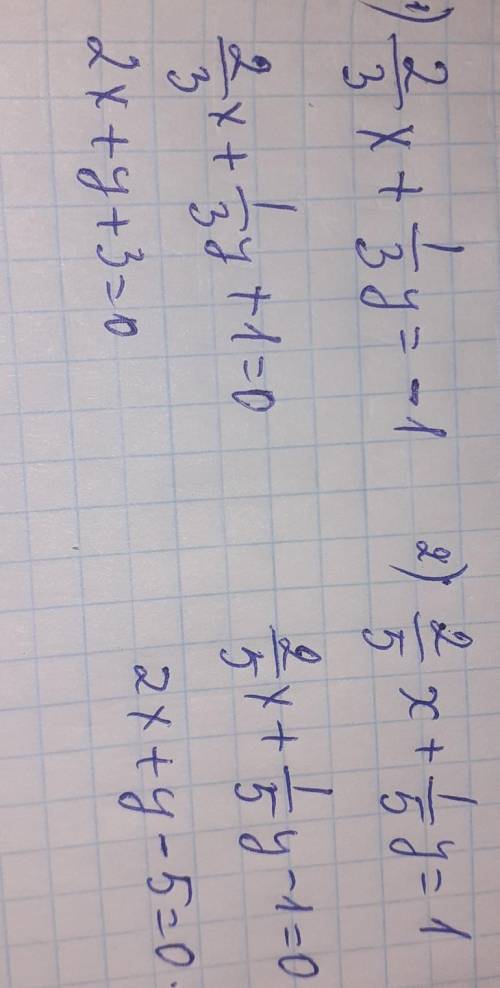 1) 2/3 x + 1/3 y = -1
2/3 x + 1/3 y + 1 = 0
2x + y + 3 = 0
2) 2/5 x + 1/5 y = 1
2/5 x + 1/5 y - 1 = 0
2x + y - 5 = 0.